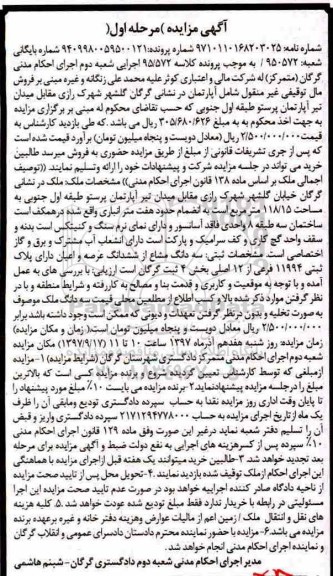 آگهی مزایده )مرحله اول(
شماره نامه: ۹۷۱۰۱۱۰۱۶۸۲۰۳۰۲۵ شماره پرونده: ۹۴۰۹۹۸۰۰۵۹۵۰۰۱۲۱ شماره بایگانی
شعبه: ۹۵۰۵۷۲ / به موجب پرونده کلاسه ۹۵/۵۷۲ اجرایی شعبه دوم اجرای احکام مدنی
گرگان (متمرکز) له شرکت مالی و اعتباری کوثر علیه محمد علی زنگانه و غیره مبنی بر فروش
مال توقیفی غیر منقول شامل آپارتمان در نشانی گرگان گلشهر شهرک رازی مقابل میدان
تیر آپارتمان پرستو طبقه اول جنوبی که حسب تقاضای محکوم له مبنی بر برگزاری مزایده
به جهت اخذ محکوم به به مبلغ ۳۰۵/۶۸۰/۶۲۶ ریال می باشد. که طی بازدید کارشناس به
قیمت ۲/۵۰۰/۰۰۰/۰۰۰ ریال (معادل دویست و پنجاه میلیون تومان) برآورد قیمت شده است
که پس از جری تشریفات قانونی از مبلغ از طریق مزایده حضوری به فروش میرسد طالبین
خرید می تواند در جلسه مزایده شرکت و پیشنهادات خود را ارائه وتسلیم نمایند. ((توصیف
اجمالی ملک بر اساس ماده ۱۳۸ قانون اجرای احکام مدنی)) مشخصات ملک: ملک در نشانی
گرگان خیابان گلشهر شهرک رازی مقابل میدان تیر آپارتمان پرستو طبقه اول جنوبی به
مساحت ۱۱۸/۱۵ مترمربع به انضمام حدود هفت متر انباری واقع شده در همکف است
ساختمان سه طبقه ۶ واحدی فاقد آسانسور و دارای نمای نرم سنگ و کنیتکس است بدنه و
سقف واحد گچ کاری و کف سرامیک و پارکت است دارای انشعاب آب مشترک و برق و گاز
اختصاصی است. مشخصات ثبتی: سه دانگ مشاع از ششدانگ عرصه و اعیان دارای پلاک
ثبتی ۱۱۹۹۴ فرعی از ۱۲ اصلی بخش ۴ ثبت گرگان است ارزیابی: با بررسی های به عمل
آمده و با توجه به موقعیت و کاربری و قدمت بنا و مصالح به کار رفته و شرایط منطقه و با در
نظر گرفتن موارد ذکر شده بالا و کسب اطلاع از مطلعین محلی قیمت سه دانگ ملک موصوف
به صورت تخلیه و بدون در نظر گرفتن تعهدات و دیونی که ممکن است وجود داشته باشد برابر
۲/۵۰۰/۰۰۰/۰۰۰ ریال معادل دویست و پنجاه میلیون تومان است( زمان و مکان مزایده)
زمان مزایده: روز شنبه هفدهم آذرماه ۱۳۹۷ ساعت ۱۰ تا ۱۱ (۱۳۹۷/۹/۱۷) مکان مزایده
شعبه دوم اجرای احکام مدنی متمرکز دادگستری شهرستان گرگان (شرایط مزایده) ۱-مزایده
ازمبلغی که توسط کارشناس تعیین گردیده شروع و برنده مزایده کسی است که بالاترین
مبلغ را درجلسه مزایده پیشنهادنماید. ۲-برنده مزایده می بایست ۱۰٪ مبلغ مورد پیشنهاد را
تا پایان وقت اداری روز مزایده نقدا به حساب سپرده دادگستری تودیع ومابقی آن را ظرف
یک ماه ازتاریخ اجرای مزایده به حساب ۲۱۷۱۲۹۴۷۷۸۰۰۰ سپرده دادگستری واریز و قبض
آن را تسلیم دفتر شعبه نماید درغیر این صورت وفق ماده ۱۲۹ قانون اجرای احکام مدنی
۱۰٪ سپرده پس از کسرهزینه های اجرایی به نفع دولت ضبط و آگهی مزایده برای مرحله
بعد تجدید خواهد شد. ۳-طالبین خرید میتوانند یک هفته قبل ازاجرای مزایده با هماهنگی
این اجرای احکام ازملک توقیف شده بازدید نمایند. ۴-تحویل محل پس از تایید صحت مزایده
از ناحیه دادگاه صادر کننده اجراییه خواهد بود در صورت عدم تایید صحت مزایده این اجرا
مسئولیتی در رابطه با خریدار ندارد فقط مبلغ تودیع شده عودت خواهد شد. ۵. کلیه هزینه
های نقل و انتقال ملک / زمین اعم از مالیات عوارض وهزینه دفتر خانه و غیره برعهده برنده
مزایده می باشد. ۶- مزایده با حضور نماینده محترم دادستان دادسرای عمومی و انقلاب گرگان
و نماینده اجرای احکام مدنی انجام خواهد شد.
مدیر اجرای احکام مدنی شعبه دوم دادگستری گرگان- شبنم هاشمی